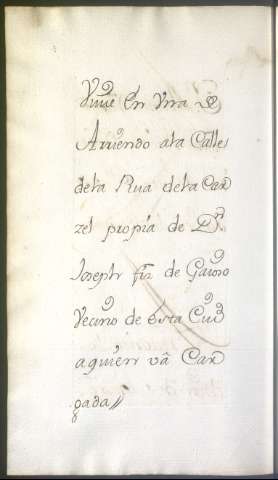 Vive En Una de
Arriendo ala Calle
dela Rua dela Car
zel propia de Dn.
Joseph frz de Gaioso
Vecino de Esta Ciud
aquien vá Car
gada//